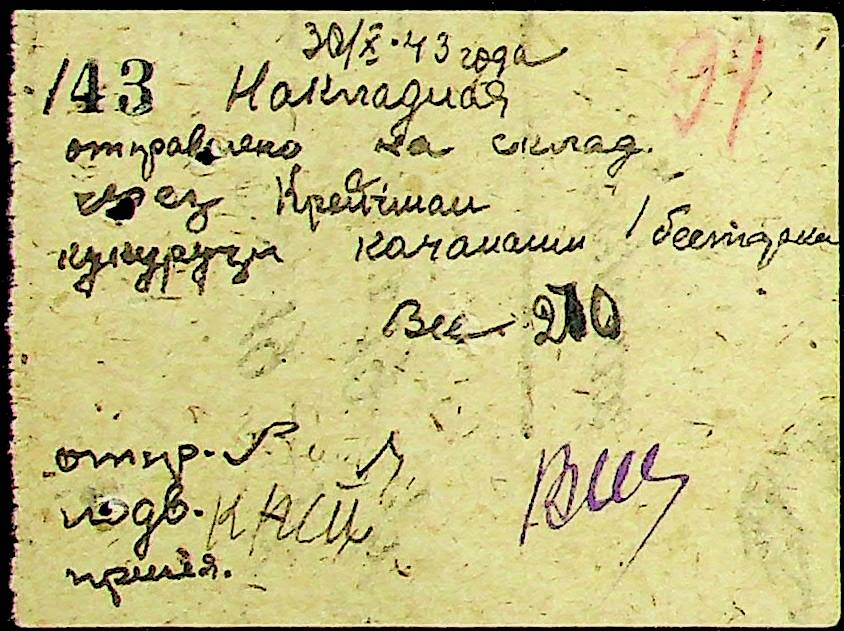 30/X-43 года
91
143 Накладная
отправлено на склад.
через Крейчман
кукурузы качанами / бестарки
Вес 210
отпр.
подв.
принял.